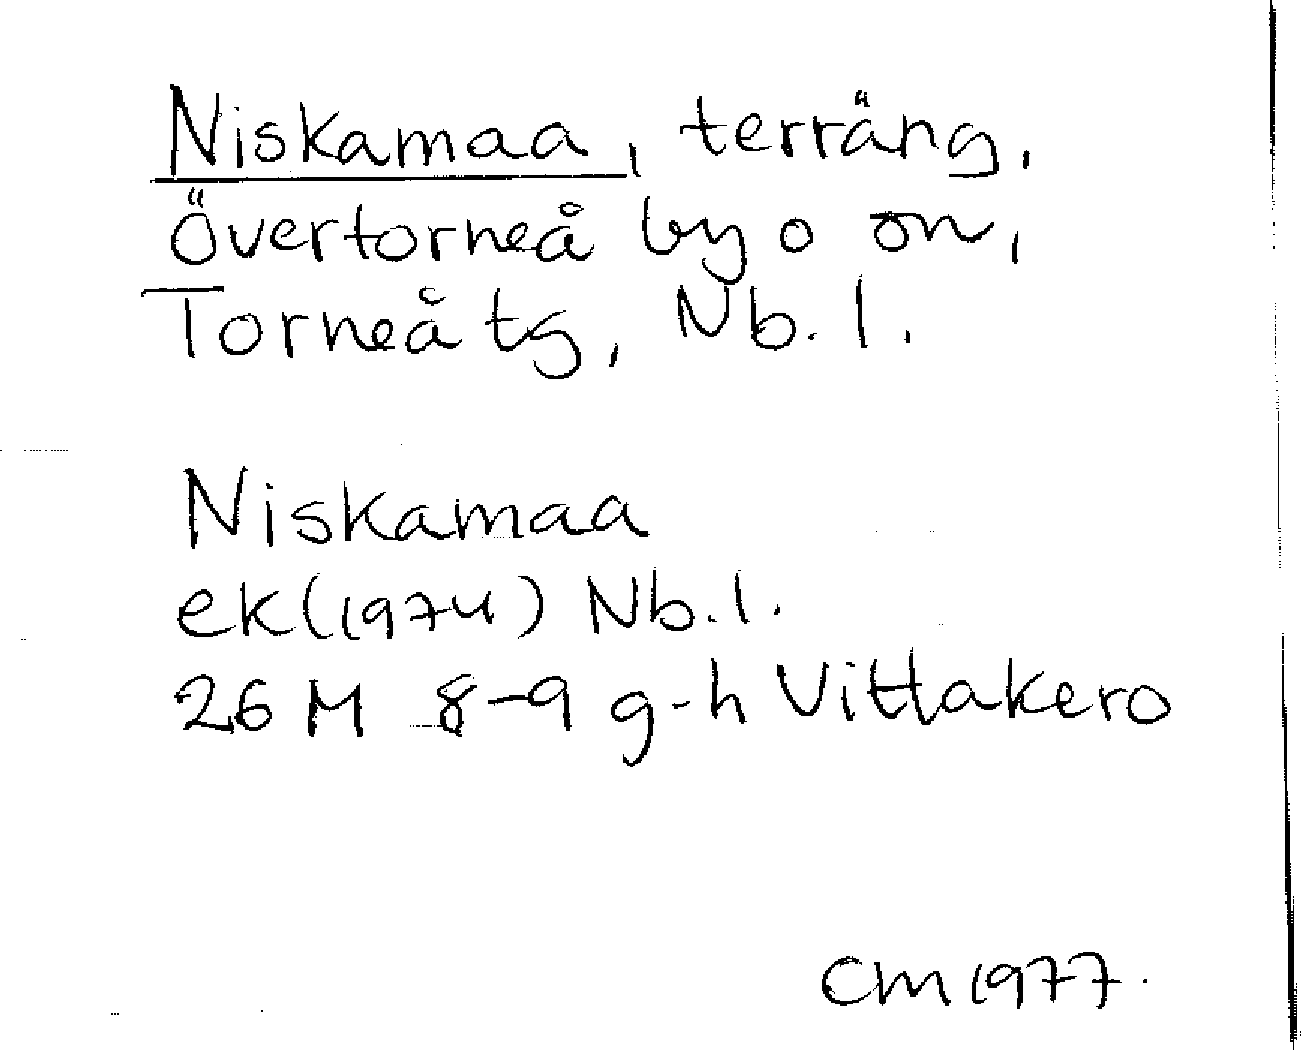 Niskamaa, terräng,
Övertorneå by o sn,
Torneå tg, Nb. l.
Niskamaa
ek (1974) Nb. l.
26 M 8-9 g-h Vittakero
CM 1977.